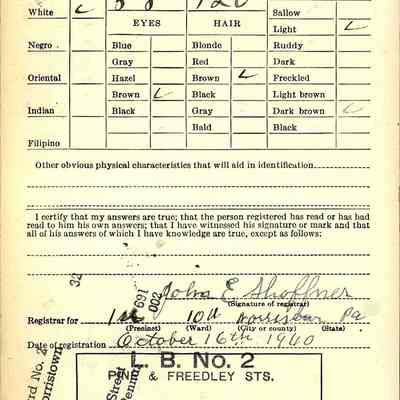 White ✓ 120 Sallow
EYES HAIR Light ✓
Negro Blue Blonde Ruddy
Gray Red Dark
Oriental Hazel Brown ✓ Freckled
Brown ✓ Black Light brown
Indian Black Gray Dark brown ✓
Bald Black
Filipino
Other obvious physical characteristics that will aid in identification
I certify that my answers are true; that the person registered has read or has had
read to him his own answers; that I have witnessed his signature or mark and that
all of his answers of which I have knowledge are true, except as follows:
32
691
002
John E Shoffner
(Signature of registrar)
Registrar for 1st 10th Norristown Pa
(Precinct) (Ward) (City or county) (State)
Date of registration October 16th 1940
L. B. No. 2
PINE & FREEDLEY STS.
rd No. 2
orristown
Street